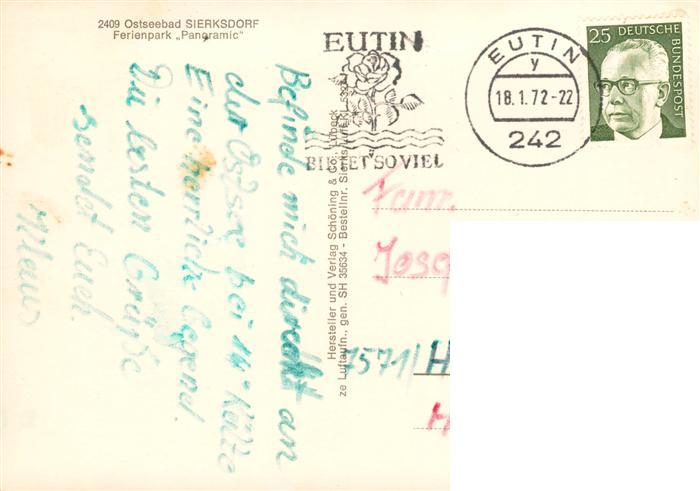 2409 Ostseebad SIERKSDORF
Ferienpark „Panoramic"
EUTIN
BIETET SO VIEL
EUTIN
y
18.1.72-22
242
25 DEUTSCHE
BUNDESPOST
Befinde mich direkt an
der Ostsee bei 14° Kälte
Eine herrliche Gegend
Die besten Grüße
sendet Euch
Klaus
Hersteller und Verlag Schöning & Co., Lübeck
ze Luftaufn., gen. SH 35634 - Bestellnr. Sierks
Fam.
Josep
7571/H
H